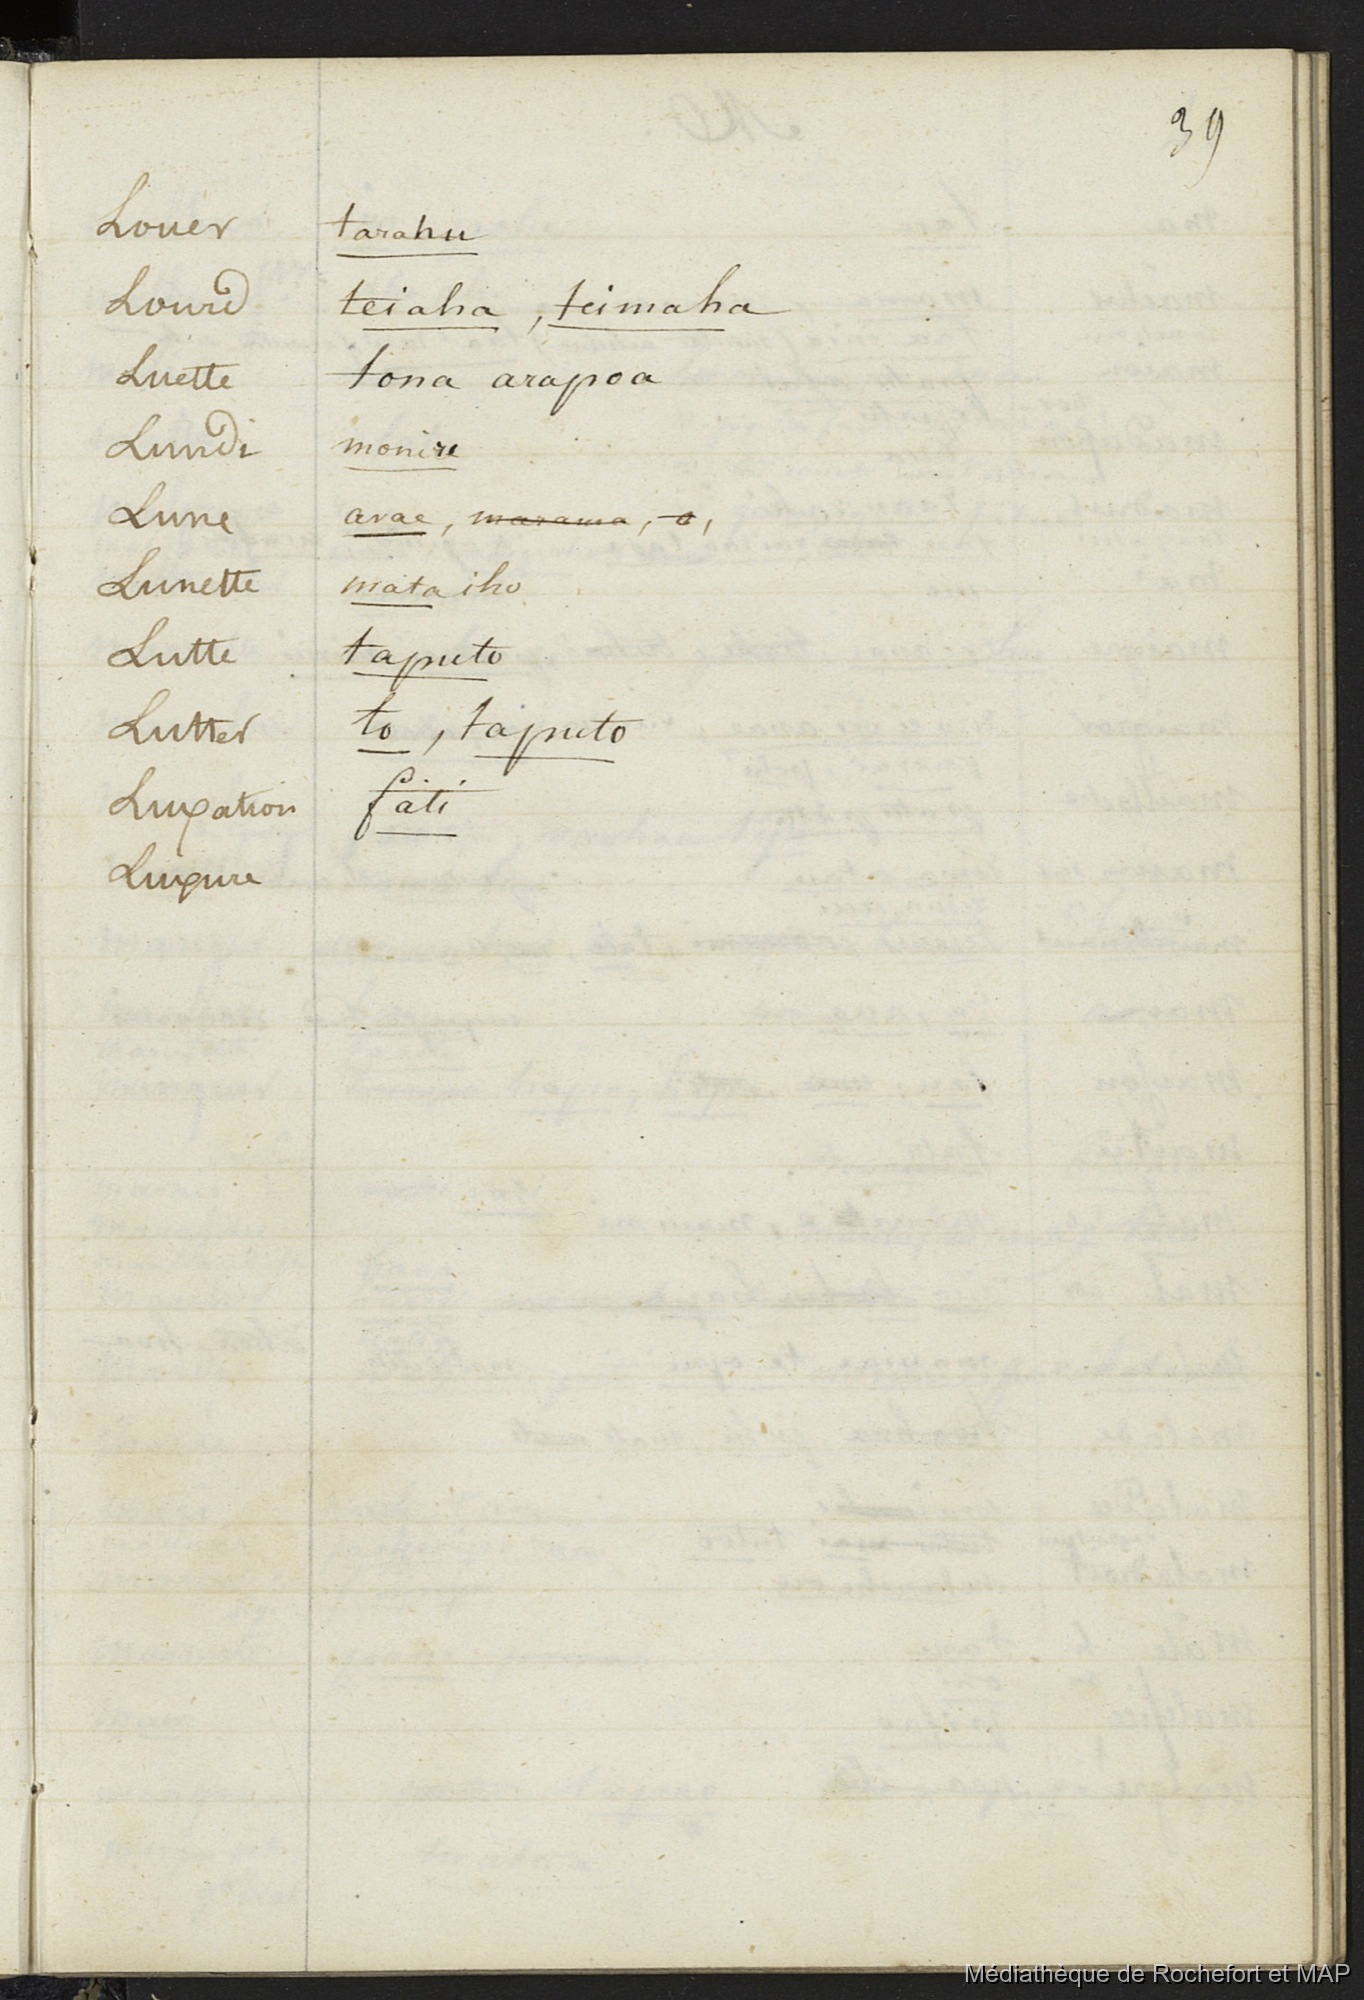 39
Louer tarahu
Lourd teiaha, teimaha
Luette tona arapoa
Lundi monire
Lune avae, marama, o,
Lunette mata iho
Lutte taputo
Lutter to, taputo
Luxation fati
Luxure
Médiathèque de Rochefort et MAP